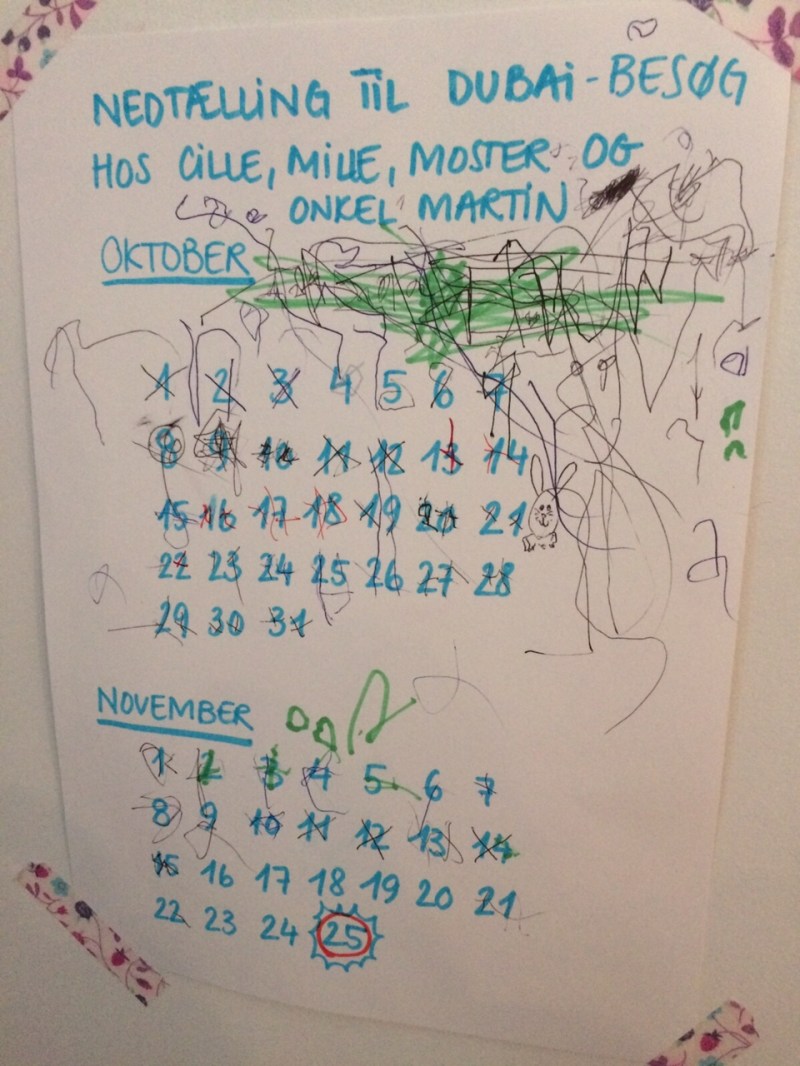 NEDTÆLLiNG TiL DUBAi-BESØG
HOS CiLLE, MiLLE, MOSTER OG
ONKEL MARTiN
OKTOBER
1 2 3 4 5 6 7
8 9 10 11 12 13 14
15 16 17 18 19 20 21
22 23 24 25 26 27 28
29 30 31
NOVEMBER
1 2 3 4 5 6 7
8 9 10 11 12 13 14
15 16 17 18 19 20 21
22 23 24 25